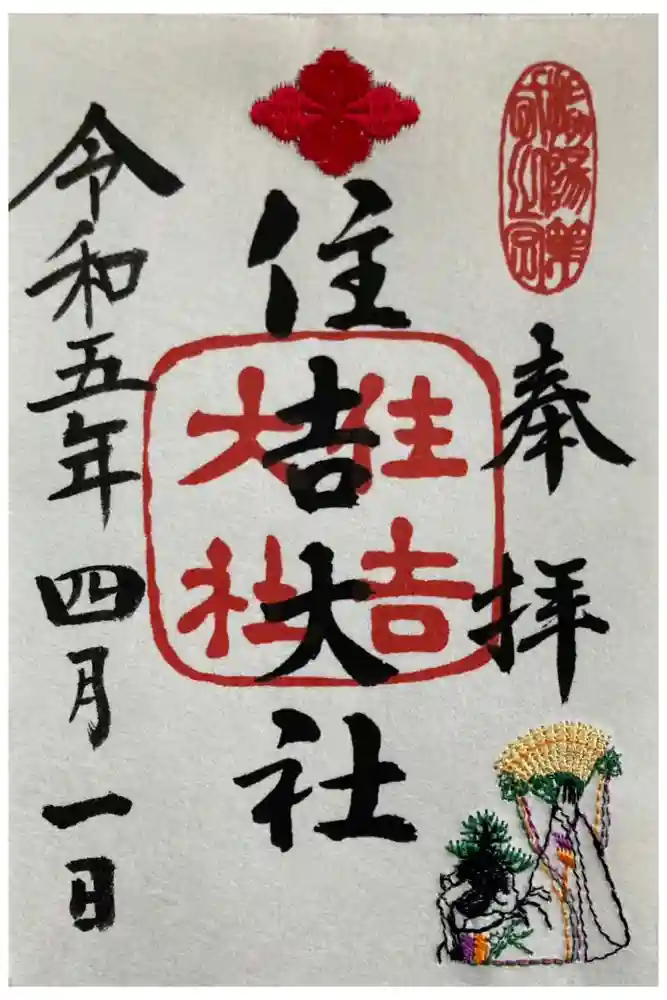 奉拝
住吉大社
住吉
大社
令和五年四月一日